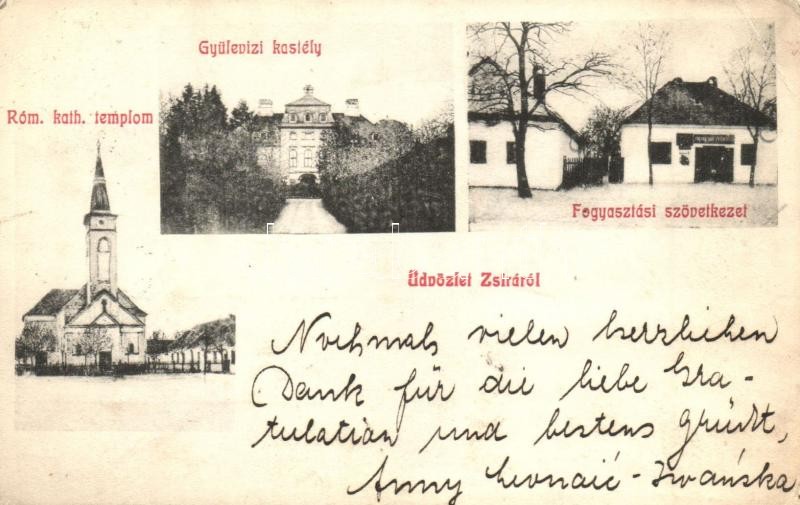 Gyülevizi kastély
Róm. kath. templom
Fogyasztási szövetkezet
Üdvözlet Zsiráról
Nochmals vielen herzlichen
Dank für die liebe Gra-
tulation und bestens grüßt,
Anny